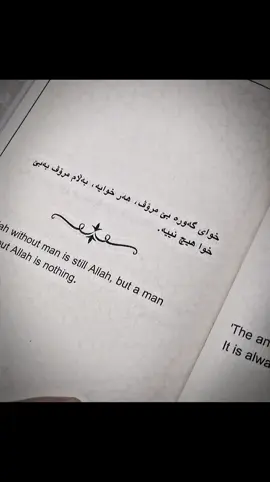 خوای گەورە بێ مرۆڤ، هەر خوایە، بەڵام مرۆڤ بەبێ
خوا هیچ نییە.
ah without man is still Allah, but a man
out Allah is nothing.
'The an
It is alwa